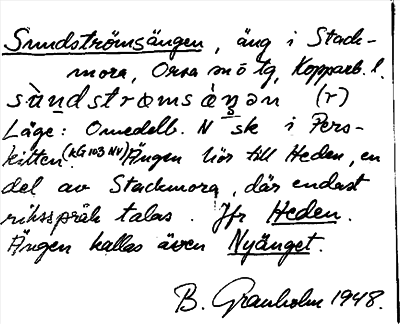 Sundströmsängen, äng i Stack-
mora, Orsa sn ö tg, Kopparb. l.
sùndstrømsàŋən (r)
Läge: Omedelb. N sk i Pers-
kitten (KG 103 NV) Ängen hör till Heden, en
del av Stackmora, där endast
riksspråk talas. Jfr Heden.
Ängen kallas även Nyänget.
B. Granholm 1948.